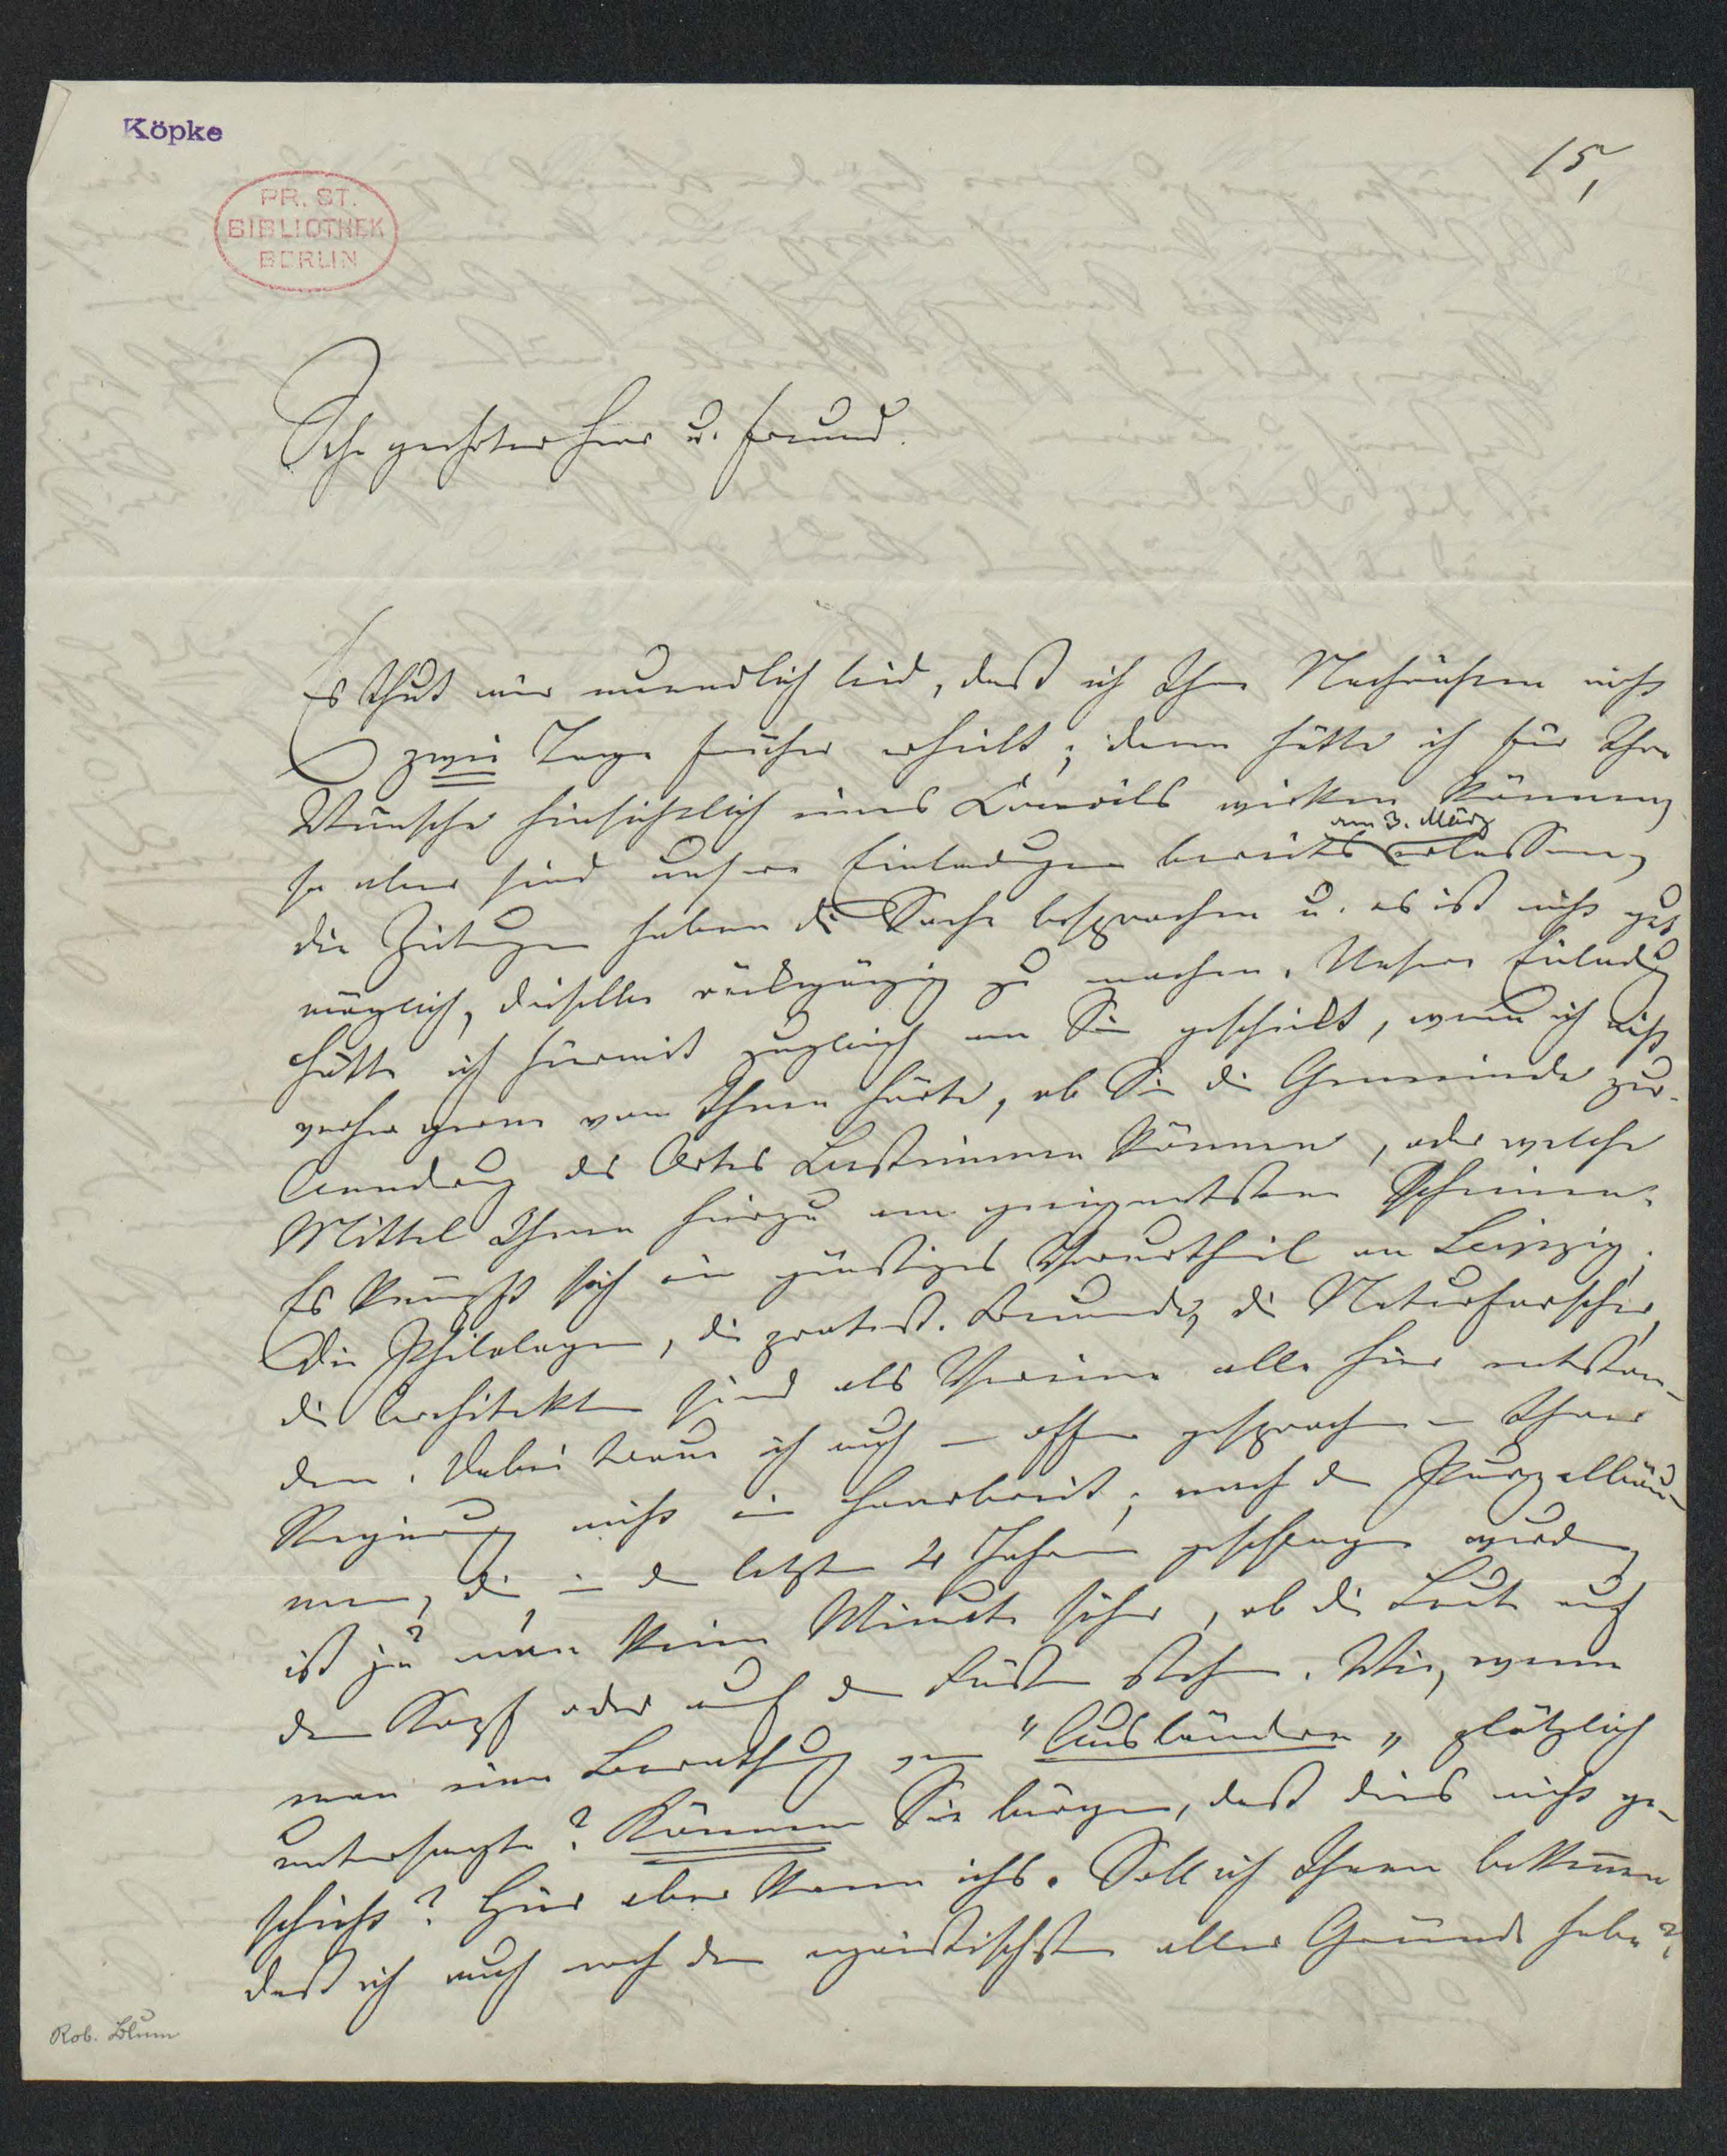 Köpke
15,
PR. ST.
BIBLIOTHEK
BERLIN
Sehr geehrter Herr u. Freund.
Es thut mir unendlich leid, daß ich Ihre Nachrichten nicht
zwei Tage früher erhielt; dann hätte ich für Ihre
Wünsche hinsichtlich eines Concils wirken können,
am 3. März
so aber sind unsere Einladungen bereits erlassen,
die Zeitungen haben die Sache besprochen u. es ist nicht gut
möglich, dieselbe rückgängig zu machen. Unsere Einladung
hätte ich hiermit zugleich an Sie geschickt, wenn ich nicht
vorher gerne von Ihnen hörte, ob Sie die Gemeinde zur
Aenderung des Ortes bestimmen können, oder welche
Mittel Ihnen hierzu am geeignetsten scheinen.
Es knüpft sich ein günstiges Vorurtheil an Leipzig;
die Philologen, die protest. Freunde, die Naturforscher,
die Architekten sind als Vereine alle hier entstan-
den. Dabei traue ich auch – offen gesprochen – Ihrer
Regierung nicht ein Haarbreit; nach den Purzelbäu-
men, die in den letzten 4 Jahren geschlagen wurden,
ist ja man keine Minute sicher, ob die Leute auf
dem Kopf oder auf den Füßen stehen. Wie, wenn
man eine Berathung von "Ausländern" plötzlich
untersagte? Können Sie bürgen, daß dies nicht ge-
schieht? Hier aber kann ichs. Soll ich Ihnen bekennen
daß ich auch noch den egoistischsten aller Gründe habe?
Rob. Blum